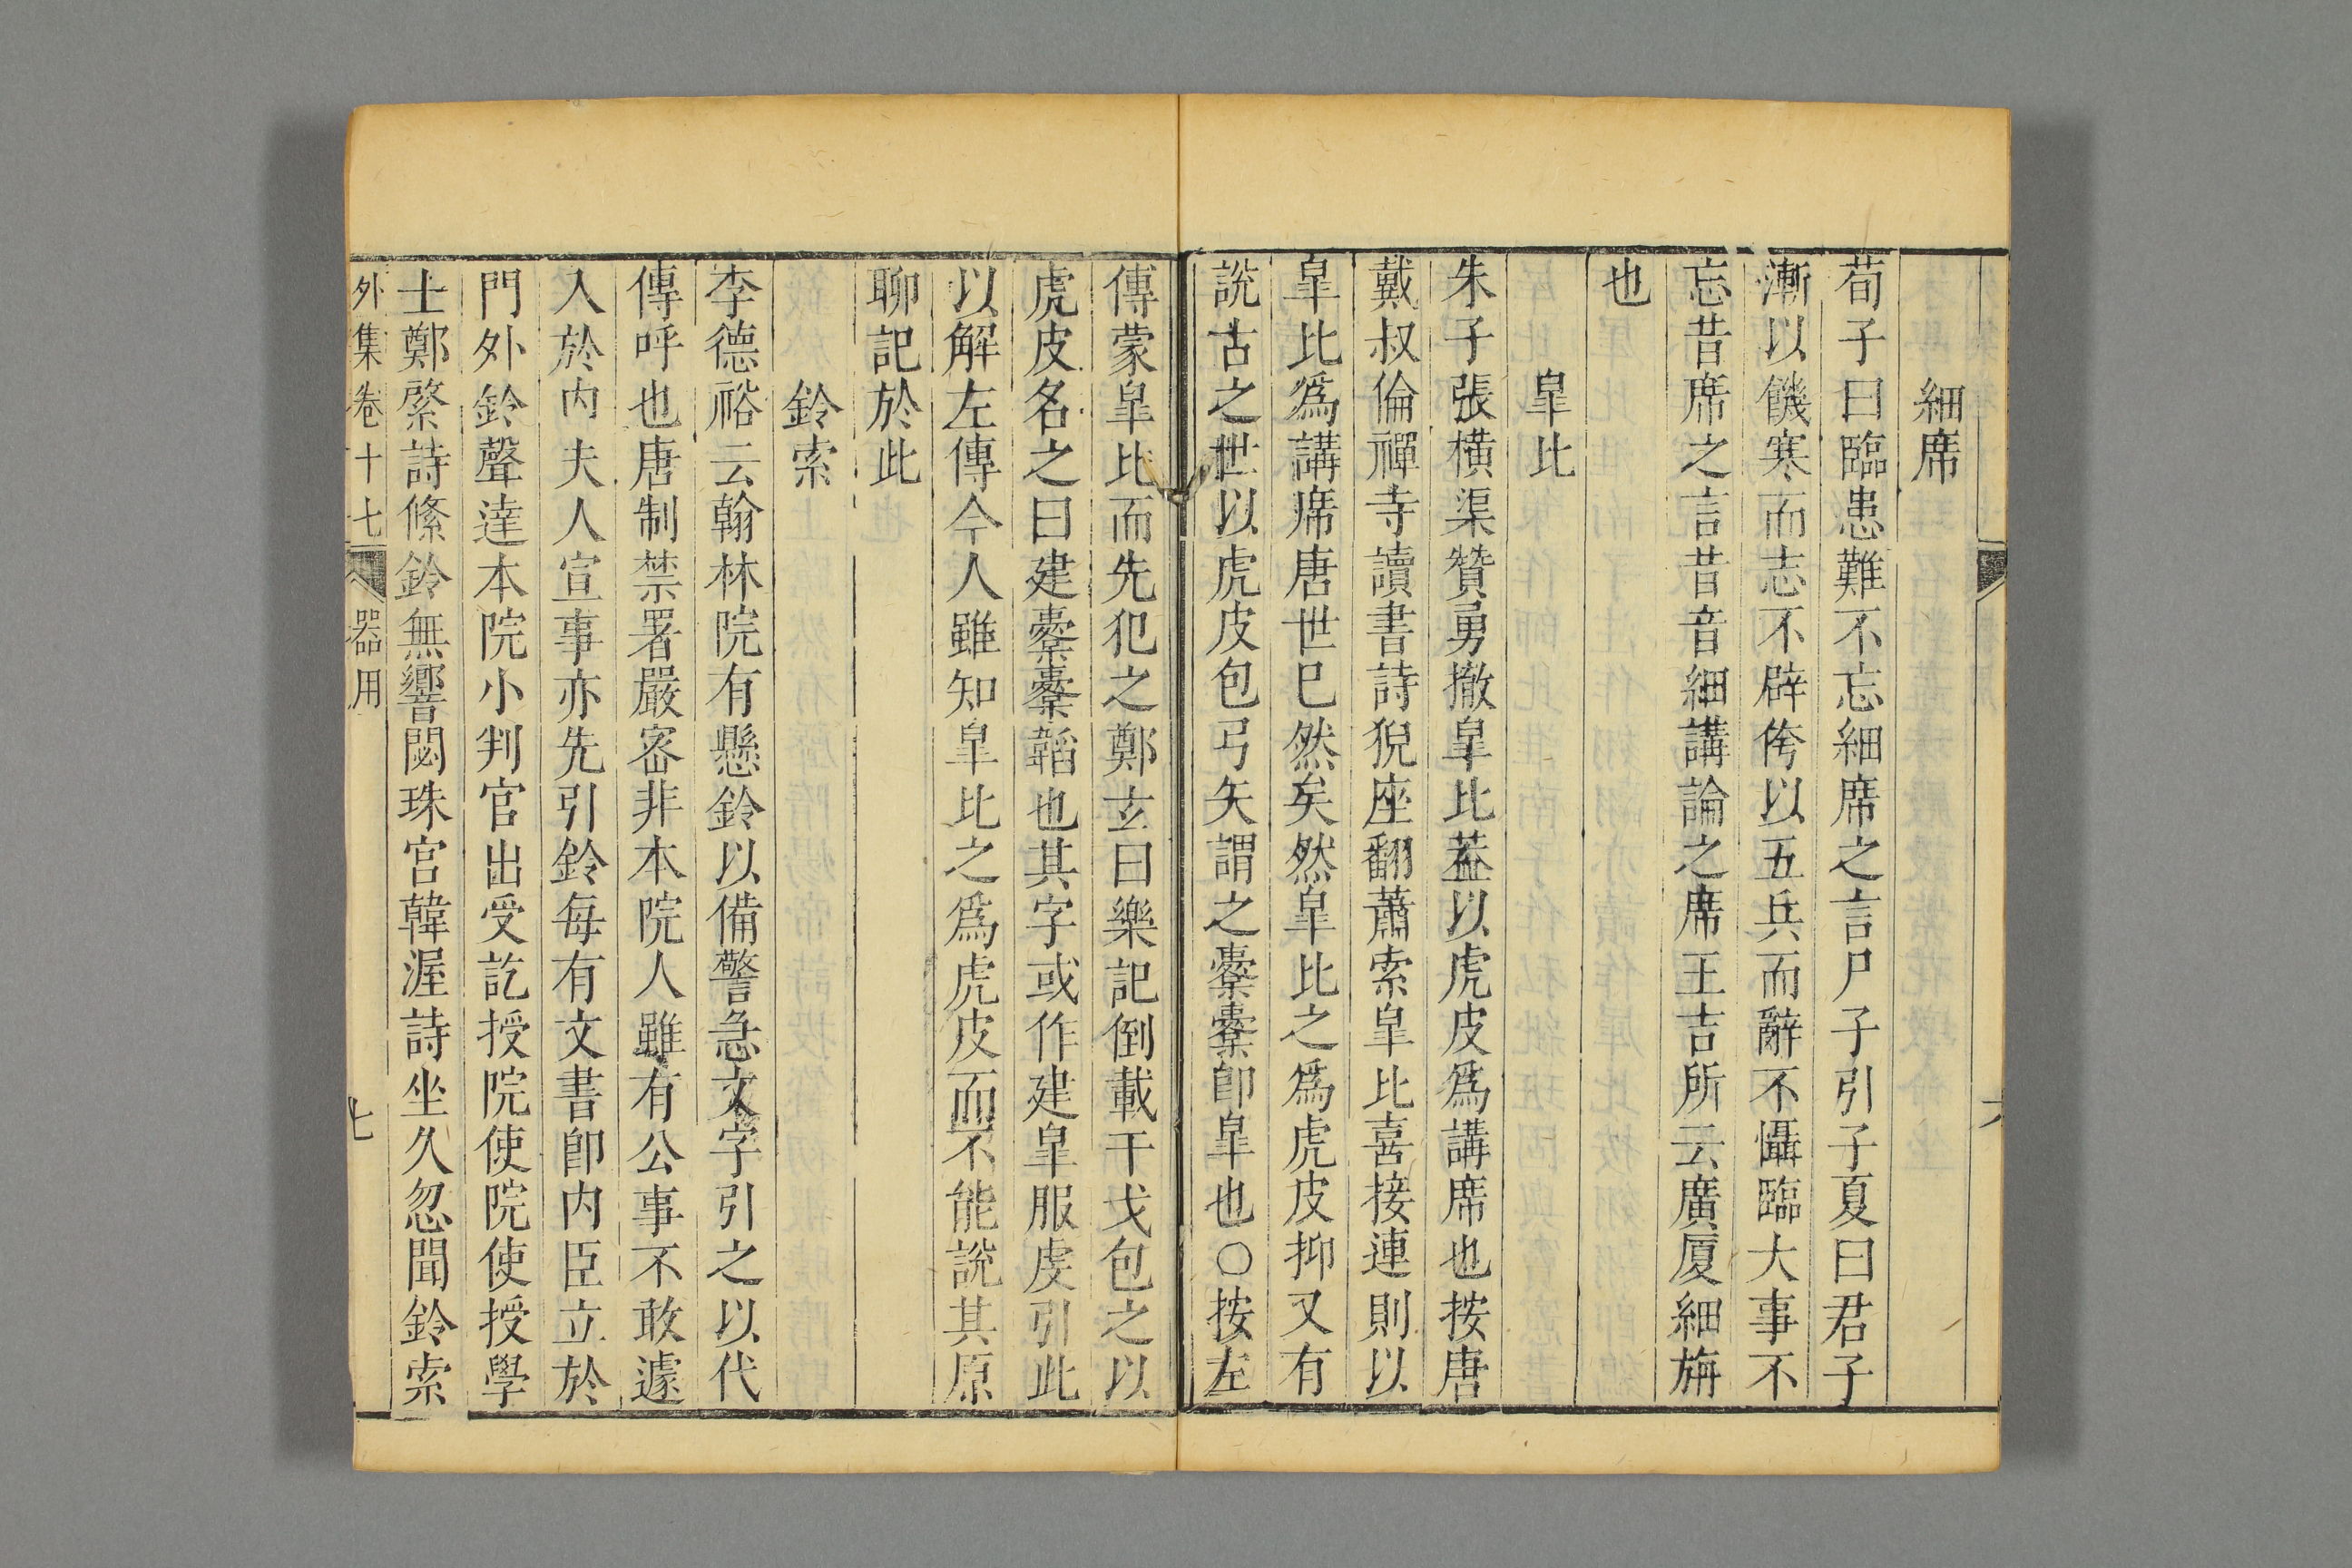 細席
荀子曰臨患難不忘細席之言尸子引子夏曰君子
漸以饑寒而志不辟侉以五兵而辭不懾臨大事不
忘昔席之言昔音細講論之席王吉所云廣厦細旃
也
皐比
朱子張橫渠贊勇撤皐比葢以虎皮爲講席也按唐
戴叔倫禪寺讀書詩猊座翻蕭索皐比喜接連則以
皐比爲講席唐世巳然矣然皐比之爲虎皮抑又有
説古之世以虎皮包弓矢謂之櫜櫜卽皐也○按左
傳蒙皐比而先犯之鄭玄曰樂記倒載干戈包之以
虎皮名之曰建櫜櫜韜也其字或作建皐服虔引此
以解左傳今人雖知皐比之爲虎皮而不能説其原
聊記於此
鈴索
李德裕云翰林院有懸鈴以備警急文字引之以代
傳呼也唐制禁署嚴密非本院人雖有公事不敢遽
入於内夫人宣事亦先引鈴每有文書卽内臣立於
門外鈴聲達本院小判官出受訖授院使院使授學
士鄭綮詩絛鈴無響閟珠宮韓渥詩坐久忽聞鈴索
外集卷十七
器用
七
六